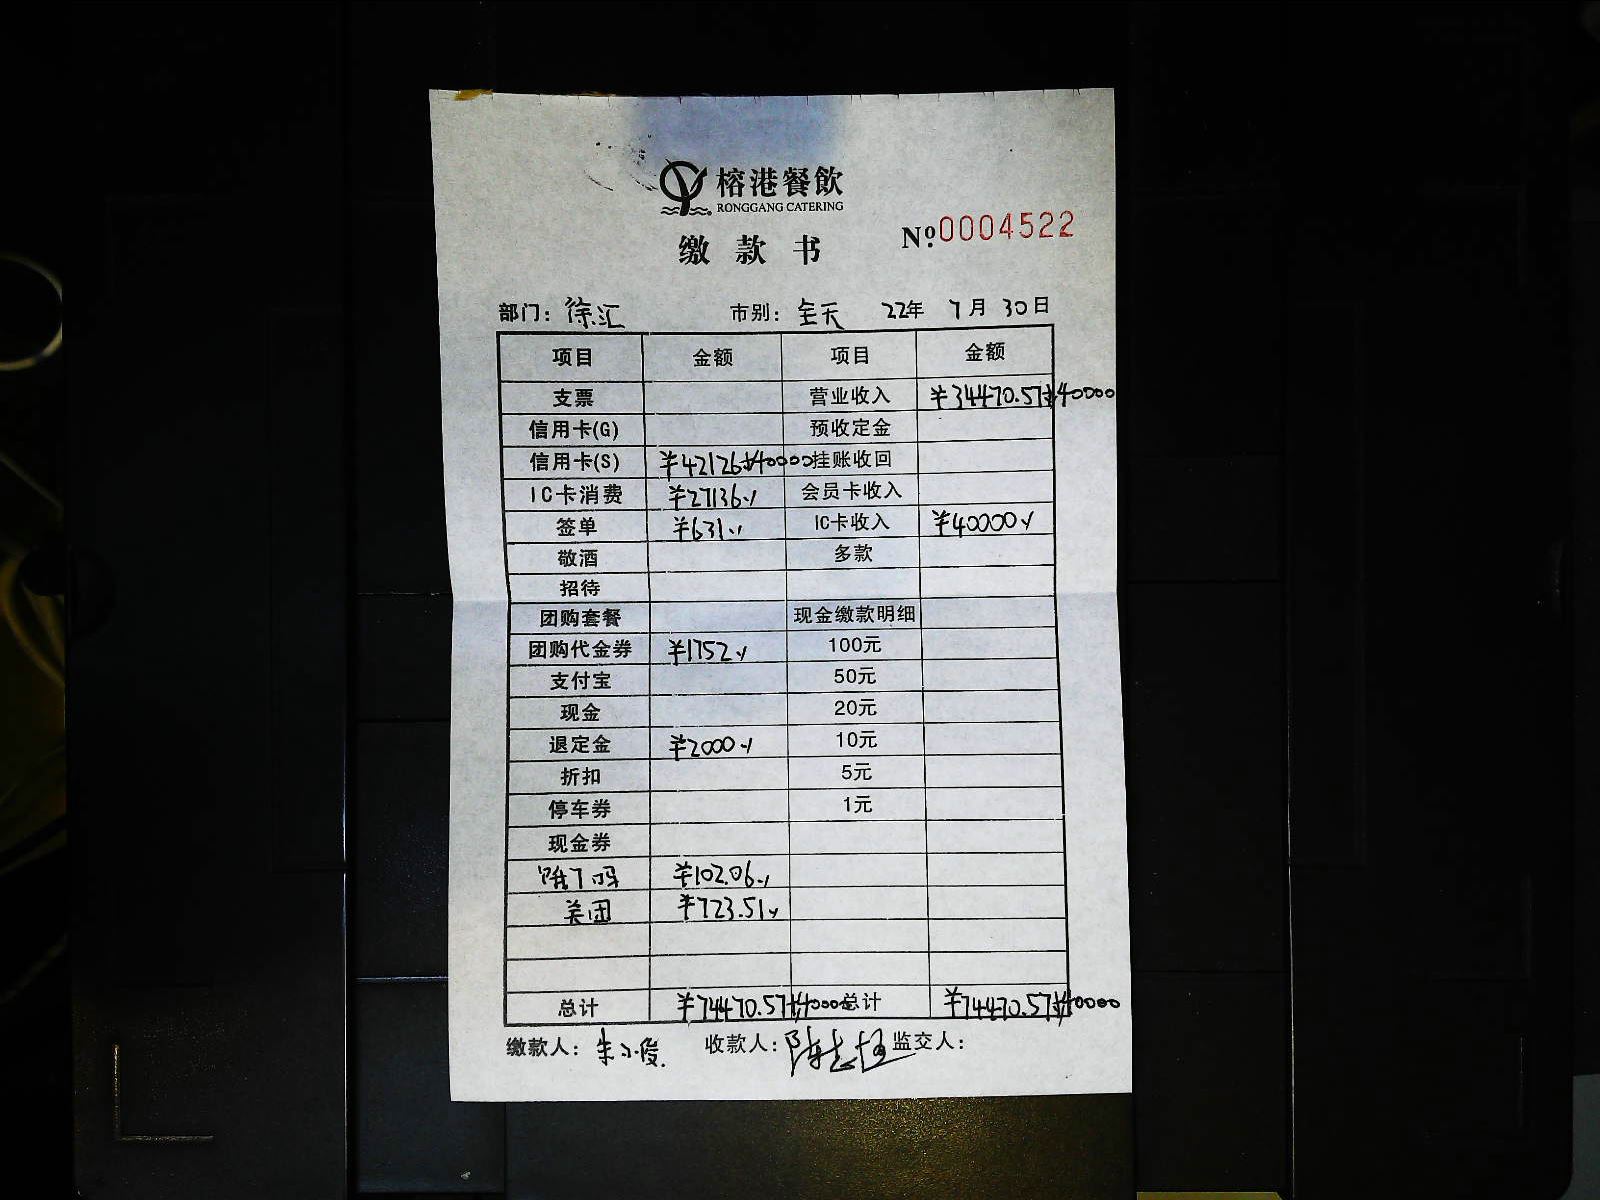 榕港餐飲
RONGGANG CATERING
缴款书
№0004522
部门：徐汇 市别：全天 22年 7月30日
项目 金额 项目 金额
支票 营业收入 ¥34470.57+40000
信用卡(G) 预收定金
信用卡(S) ¥42126+40000 挂账收回
IC卡消费 ¥27136 会员卡收入
签单 ¥631 IC卡收入 ¥40000
敬酒 多款
招待
团购套餐 现金缴款明细
团购代金券 ¥1752 100元
支付宝 50元
现金 20元
退定金 ¥2000 10元
折扣 5元
停车券 1元
现金券
饿了吗 ¥102.06
美团 ¥723.51
总计 ¥74470.57+40000 总计 ¥74470.57+40000
缴款人：朱小俊 收款人：陈 监交人：